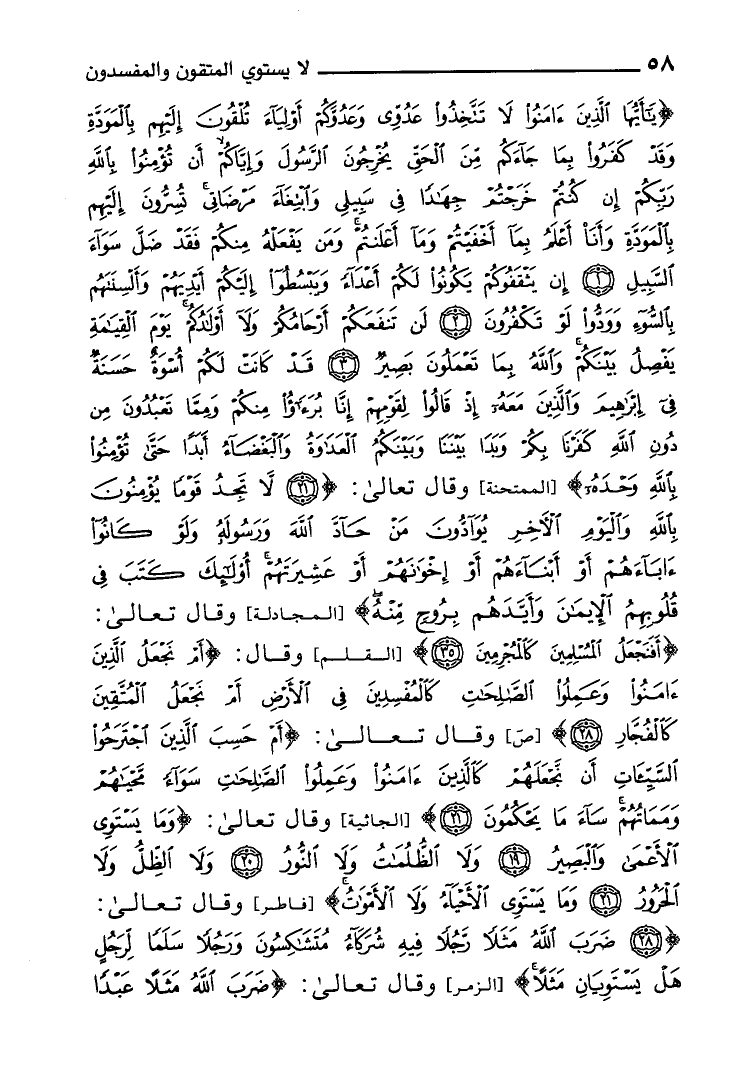 ٥٨ لا يستوي المتقون والمفسدون
﴿يَٰٓأَيُّهَا ٱلَّذِينَ ءَامَنُوا۟ لَا تَتَّخِذُوا۟ عَدُوِّى وَعَدُوَّكُمْ أَوْلِيَآءَ تُلْقُونَ إِلَيْهِم بِٱلْمَوَدَّةِ
وَقَدْ كَفَرُوا۟ بِمَا جَآءَكُم مِّنَ ٱلْحَقِّ يُخْرِجُونَ ٱلرَّسُولَ وَإِيَّاكُمْ ۙ أَن تُؤْمِنُوا۟ بِٱللَّهِ
رَبِّكُمْ إِن كُنتُمْ خَرَجْتُمْ جِهَٰدًا فِى سَبِيلِى وَٱبْتِغَآءَ مَرْضَاتِى ۚ تُسِرُّونَ إِلَيْهِم
بِٱلْمَوَدَّةِ وَأَنَا۠ أَعْلَمُ بِمَآ أَخْفَيْتُمْ وَمَآ أَعْلَنتُمْ ۚ وَمَن يَفْعَلْهُ مِنكُمْ فَقَدْ ضَلَّ سَوَآءَ
ٱلسَّبِيلِ ۝١ إِن يَثْقَفُوكُمْ يَكُونُوا۟ لَكُمْ أَعْدَآءً وَيَبْسُطُوٓا۟ إِلَيْكُمْ أَيْدِيَهُمْ وَأَلْسِنَتَهُم
بِٱلسُّوٓءِ وَوَدُّوا۟ لَوْ تَكْفُرُونَ ۝٢ لَن تَنفَعَكُمْ أَرْحَامُكُمْ وَلَآ أَوْلَٰدُكُمْ ۚ يَوْمَ ٱلْقِيَٰمَةِ
يَفْصِلُ بَيْنَكُمْ ۚ وَٱللَّهُ بِمَا تَعْمَلُونَ بَصِيرٌ ۝٣ قَدْ كَانَتْ لَكُمْ أُسْوَةٌ حَسَنَةٌ
فِىٓ إِبْرَٰهِيمَ وَٱلَّذِينَ مَعَهُۥٓ إِذْ قَالُوا۟ لِقَوْمِهِمْ إِنَّا بُرَءَٰٓؤُا۟ مِنكُمْ وَمِمَّا تَعْبُدُونَ مِن
دُونِ ٱللَّهِ كَفَرْنَا بِكُمْ وَبَدَا بَيْنَنَا وَبَيْنَكُمُ ٱلْعَدَٰوَةُ وَٱلْبَغْضَآءُ أَبَدًا حَتَّىٰ تُؤْمِنُوا۟
بِٱللَّهِ وَحْدَهُۥٓ﴾ [الممتحنة] وقال تعالىٰ: ﴿۝٢١ لَّا تَجِدُ قَوْمًا يُؤْمِنُونَ
بِٱللَّهِ وَٱلْيَوْمِ ٱلْءَاخِرِ يُوَآدُّونَ مَنْ حَآدَّ ٱللَّهَ وَرَسُولَهُۥ وَلَوْ كَانُوٓا۟
ءَابَآءَهُمْ أَوْ أَبْنَآءَهُمْ أَوْ إِخْوَٰنَهُمْ أَوْ عَشِيرَتَهُمْ ۚ أُو۟لَٰٓئِكَ كَتَبَ فِى
قُلُوبِهِمُ ٱلْإِيمَٰنَ وَأَيَّدَهُم بِرُوحٍ مِّنْهُ ۖ﴾ [المجادلة] وقال تعالىٰ:
﴿أَفَنَجْعَلُ ٱلْمُسْلِمِينَ كَٱلْمُجْرِمِينَ ۝٣٥﴾ [القلم] وقال: ﴿أَمْ نَجْعَلُ ٱلَّذِينَ
ءَامَنُوا۟ وَعَمِلُوا۟ ٱلصَّٰلِحَٰتِ كَٱلْمُفْسِدِينَ فِى ٱلْأَرْضِ أَمْ نَجْعَلُ ٱلْمُتَّقِينَ
كَٱلْفُجَّارِ ۝٢٨﴾ [صٓ] وقال تعالىٰ: ﴿أَمْ حَسِبَ ٱلَّذِينَ ٱجْتَرَحُوا۟
ٱلسَّيِّـَٔاتِ أَن نَّجْعَلَهُمْ كَٱلَّذِينَ ءَامَنُوا۟ وَعَمِلُوا۟ ٱلصَّٰلِحَٰتِ سَوَآءً مَّحْيَاهُمْ
وَمَمَاتُهُمْ ۚ سَآءَ مَا يَحْكُمُونَ ۝٢١﴾ [الجاثية] وقال تعالىٰ: ﴿وَمَا يَسْتَوِى
ٱلْأَعْمَىٰ وَٱلْبَصِيرُ ۝١٩ وَلَا ٱلظُّلُمَٰتُ وَلَا ٱلنُّورُ ۝٢٠ وَلَا ٱلظِّلُّ وَلَا
ٱلْحَرُورُ ۝٢١ وَمَا يَسْتَوِى ٱلْأَحْيَآءُ وَلَا ٱلْأَمْوَٰتُ ۚ﴾ [فاطر] وقال تعالىٰ:
﴿۝٢٨ ضَرَبَ ٱللَّهُ مَثَلًا رَّجُلًا فِيهِ شُرَكَآءُ مُتَشَٰكِسُونَ وَرَجُلًا سَلَمًا لِّرَجُلٍ
هَلْ يَسْتَوِيَانِ مَثَلًا ۚ﴾ [الزمر] وقال تعالىٰ: ﴿ضَرَبَ ٱللَّهُ مَثَلًا عَبْدًا